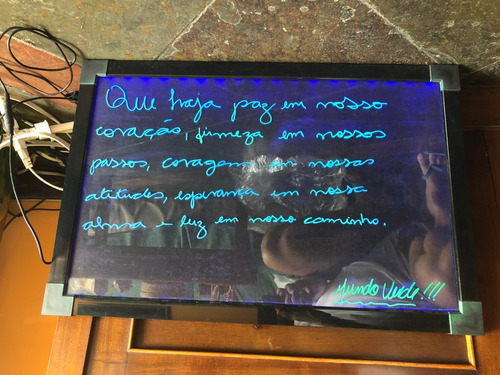 Que haja paz em nosso
coração, firmeza em nossos
passos, coragem em nossas
atitudes, esperança em nossa
alma e luz em nosso caminho.
Mundo Verde!!!